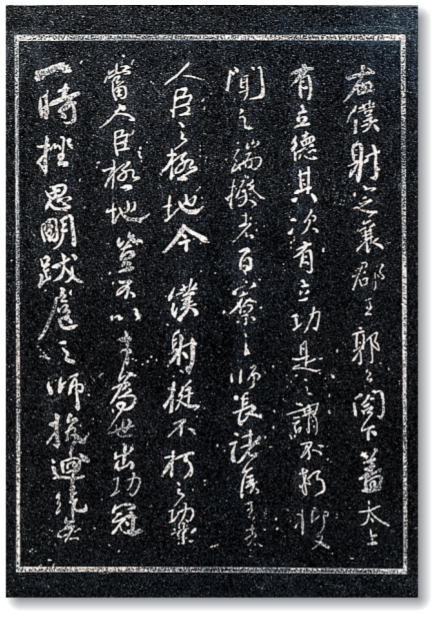 右僕射定襄郡王郭公閣下蓋太上
有立德其次有立功是之謂不朽抑又
聞之端揆者百寮之師長諸侯王者
人臣之極地今僕射挺不朽之功業
當人臣極地豈不以才為世出功冠
一時挫思明跋扈之師抗迴紇無